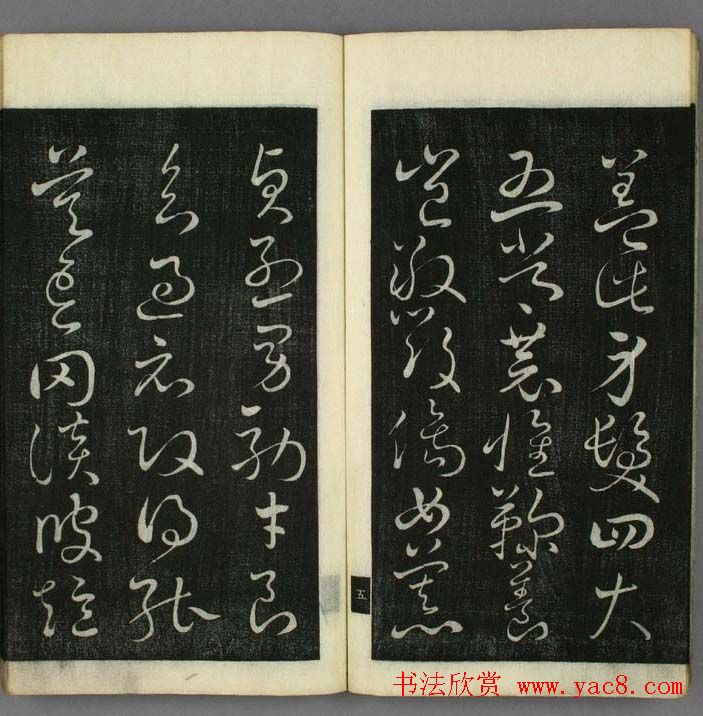 盖此身髮四大
五常恭惟鞠養
豈敢毀傷女慕
五
貞烈男効才良
知過必改得能
莫忘罔談彼短
书法欣赏 www.yac8.com